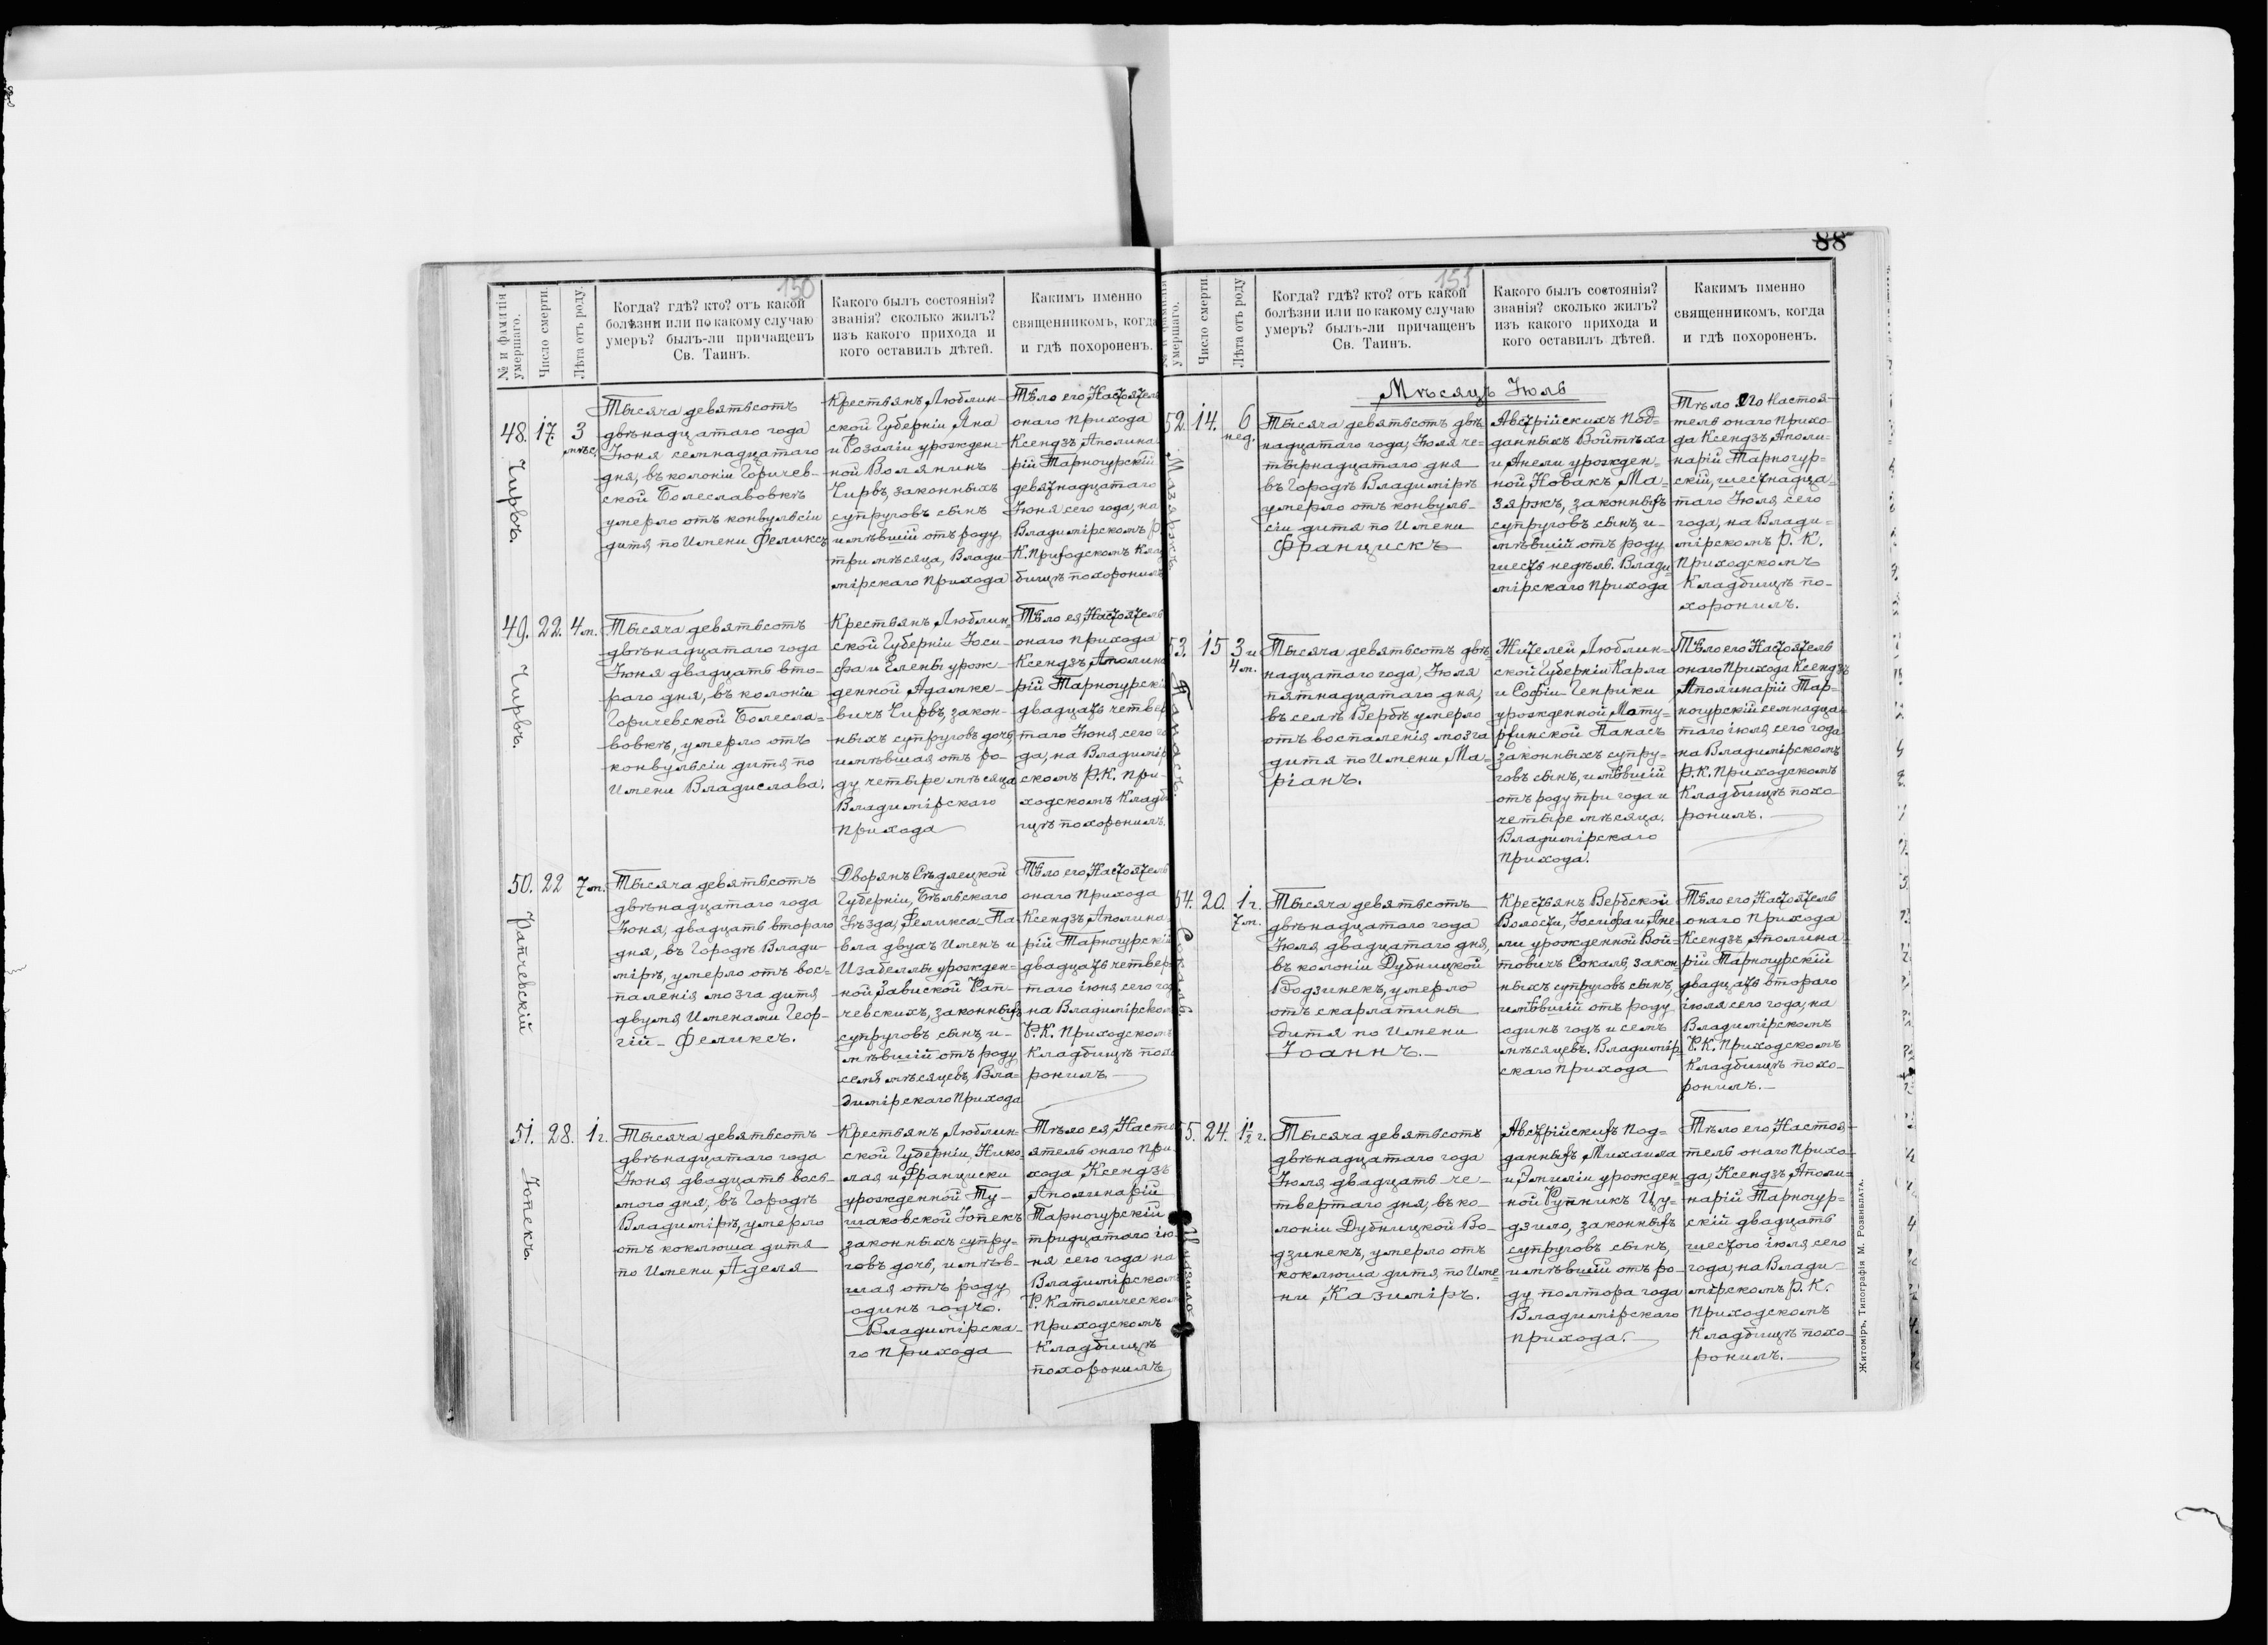 150
№ и фамилія умершаго.
Число смерти.
Лѣта отъ роду.
Когда? гдѣ? кто? отъ какой
болѣзни или по какому случаю
умеръ? былъ-ли причащенъ
Св. Таинъ.
Какого былъ состоянія?
званія? сколько жилъ?
изъ какого прихода и
кого оставилъ дѣтей.
Какимъ именно
священникомъ, когда
и гдѣ похороненъ.
48.
Чирвъ.
17.
3
мѣс.
Тысяча девятьсотъ
двѣнадцатаго года
Іюня семнадцатаго
дня, въ колоніи Горичев-
ской Болеславовкѣ
умерло отъ конвульсіи
дитя, по Имени Феликсъ
Крестьянъ Люблин-
ской Губерніи Яна
и Розаліи урожден-
ной Волянинъ
Чирвъ, законныхъ
супруговъ сынъ
имѣвшій отъ роду
три мѣсяца, Влади-
мірскаго прихода
Тѣло его, Настоятель
онаго прихода
Ксендзъ Аполина-
рій Тарногурскій
девятнадцатаго
Іюня сего года, на
Владимірскомъ Р.
К. Приходскомъ Клад-
бищѣ похоронилъ
49.
Чирвъ.
22.
4 м.
Тысяча девятьсотъ
двѣнадцатаго года
Іюня двадцать вто-
раго дня, въ колоніи
Горичевской Болесла-
вовкѣ, умерло отъ
конвульсіи дитя, по
Имени Владислава.
Крестьянъ Люблин-
ской Губерніи Іоси-
фа и Елены урож-
денной Адамке-
вичъ Чирвъ, закон-
ныхъ супруговъ дочь
имѣвшая отъ ро-
ду четыре мѣсяца
Владимірскаго
прихода
Тѣло ея, Настоятель
онаго прихода
Ксендзъ Аполина-
рій Тарногурскій
двадцать четвер-
таго Іюня сего го-
да, на Владимір-
скомъ Р.К. при-
ходскомъ Кладби-
щѣ похоронилъ.
50.
Рапчевскій
22
7 м.
Тысяча девятьсотъ
двѣнадцатаго года
Іюня, двадцать втораго
дня, въ Городѣ Влади-
мірѣ, умерло отъ вос-
паленія мозга дитя
двумя Именами Геор-
гій-Феликсъ.
Дворянъ Сѣдлецкой
Губерніи, Бѣльскаго
Уѣзда, Феликса-Па-
вла двухъ Именъ и
Изабеллы урожден-
ной Завиской Рап-
чевскихъ, законныхъ
супруговъ сынъ, и-
мѣвшій отъ роду
семь мѣсяцевъ, Вла-
димірскаго прихода
Тѣло его, Настоятель
онаго прихода
Ксендзъ, Аполина-
рій Тарногурскій
двадцать четвер-
таго іюня, сего го-
на Владимірском
Р.К. приходскомъ
Кладбищѣ похо-
ронилъ.
51.
Іопекъ.
28.
1 г.
Тысяча девятьсотъ
двѣнадцатаго года
Іюня двадцать вось-
мого дня, въ Городѣ
Владимірѣ, умерло
отъ коклюша дитя
по Имени Аделя
Крестьянъ Люблин-
ской Губерніи, Нико-
лая и Франциски
урожденной Ту-
шаковской Іопекъ
законныхъ супру-
говъ дочь, имѣв-
шая отъ роду
одинъ годъ.
Владимірска-
го прихода
Тѣло ея, Насто-
ятель онаго при-
хода Ксендзъ
Аполинарій
Тарногурскій
тридцатаго ію-
ня сего года на
Владимірскомъ
Р. Католическом
приходскомъ
Кладбищѣ
похоронилъ
88
151
умершаго.
Число смерти.
Лѣта отъ роду
Когда? гдѣ? кто? отъ какой
болѣзни или по какому случаю
умеръ? былъ-ли причащенъ
Св. Таинъ.
Какого былъ состоянія?
званія? сколько жилъ?
изъ какого прихода и
кого оставилъ дѣтей.
Какимъ именно
священникомъ, когда
и гдѣ похороненъ.
Мѣсяцъ Іюль
52.
Мазяржъ
14.
6
нед.
Тысяча девятьсотъ двѣ-
надцатаго года, Іюля че-
тырнадцатаго дня
въ Городѣ Владимірѣ
умерло отъ конвуль-
сіи дитя по Имени
Францискъ
Австрійскихъ под-
данныхъ Войтѣха
и Анели урожден-
ной Новакъ Ма-
зяржъ, законныхъ
супруговъ сынъ, и-
мѣвшій отъ роду
шесть недѣль. Влади-
мірскаго прихода
Тѣло его Настоя-
тель онаго прихо-
да Ксендзъ Аполи-
нарій Тарногур-
скій, шестнадца-
таго Іюля, сего
года, на Влади-
мірскомъ Р. К.
приходскомъ
Кладбищѣ по-
хоронилъ.
53.
Панасъ.
15
3 и
4 м.
Тысяча девятьсотъ двѣ-
надцатаго года, Іюля
пятнадцатаго дня,
въ селѣ Вербѣ умерло
отъ воспаленія мозга
дитя по Имени Ма-
ріанъ.
Жителей Люблин-
ской Губерніи Карла
и Софіи-Генрики
урожденной Мату-
шинской Панасъ
законныхъ супру-
говъ сынъ, имѣвшій
отъ роду три года и
четыре мѣсяца.
Владимірскаго
прихода.
Тѣло его, Настоятель
онаго прихода Ксендзъ
Аполинарій Тар-
ногурскій семнадца-
таго іюля, сего года
на Владимірскомъ
Р.К. приходскомъ
Кладбищѣ похо-
ронилъ.
54.
Сокаль.
20.
1 г.
7 м.
Тысяча девятьсотъ
двѣнадцатаго года
Іюля, двадцатаго дня,
въ колоніи Дубницкой
Водзинекъ, умерло
отъ скарлатины
дитя по Имени
Іоаннъ.
Крестьянъ Вербской
Волости, Іосифа и Ане-
ли урожденной Вой-
товичъ Сокаль, закон-
ныхъ супруговъ сынъ,
имѣвшій отъ роду
одинъ годъ и семь
мѣсяцевъ. Владимір-
скаго прихода
Тѣло его, Настоятель
онаго прихода
Ксендзъ Аполина-
рій Тарногурскій
двадцать втораго
іюля сего года, на
Владимірскомъ
Р.К. приходскомъ
Кладбищѣ похо-
ронилъ.
55.
24.
1½ г.
Тысяча девятьсотъ
двѣнадцатаго года
Іюля, двадцать че-
твертаго дня, въ ко-
лоніи Дубницкой Во-
дзинекъ, умерло отъ
коклюша дитя, по Име-
ни Казиміръ.
Австрійскихъ под-
данныхъ, Михаила
и Эмиліи урожден-
ной Рутникъ Цу-
дзило, законныхъ
супруговъ сынъ,
имѣвшій отъ ро-
ду полтора года
Владимірскаго
прихода.
Тѣло его, Настоя-
тель онаго прихо-
да, Ксендзъ Аполи-
нарій Тарногур-
скій двадцать
шестого іюля, сего
года, на Влади-
мірскомъ Р.К.
приходскомъ
Кладбищѣ похо-
ронилъ.
Житоміръ, Типографія М. Розенблата.